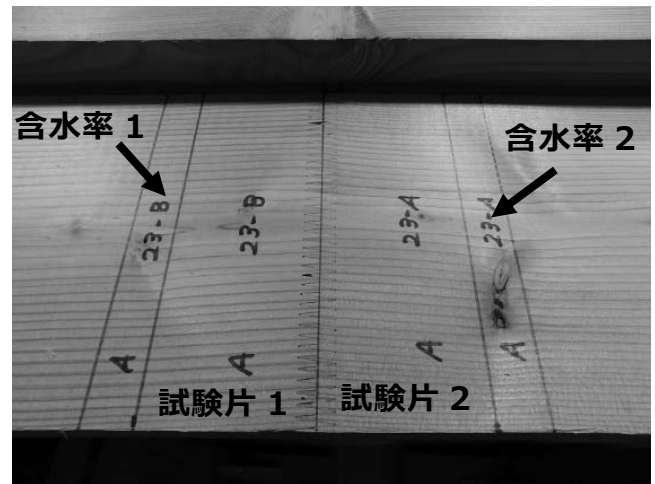 含水率 1
含水率 2
23-B
23-B
23-A
23-A
A
A
A
A
試験片 1
試験片 2